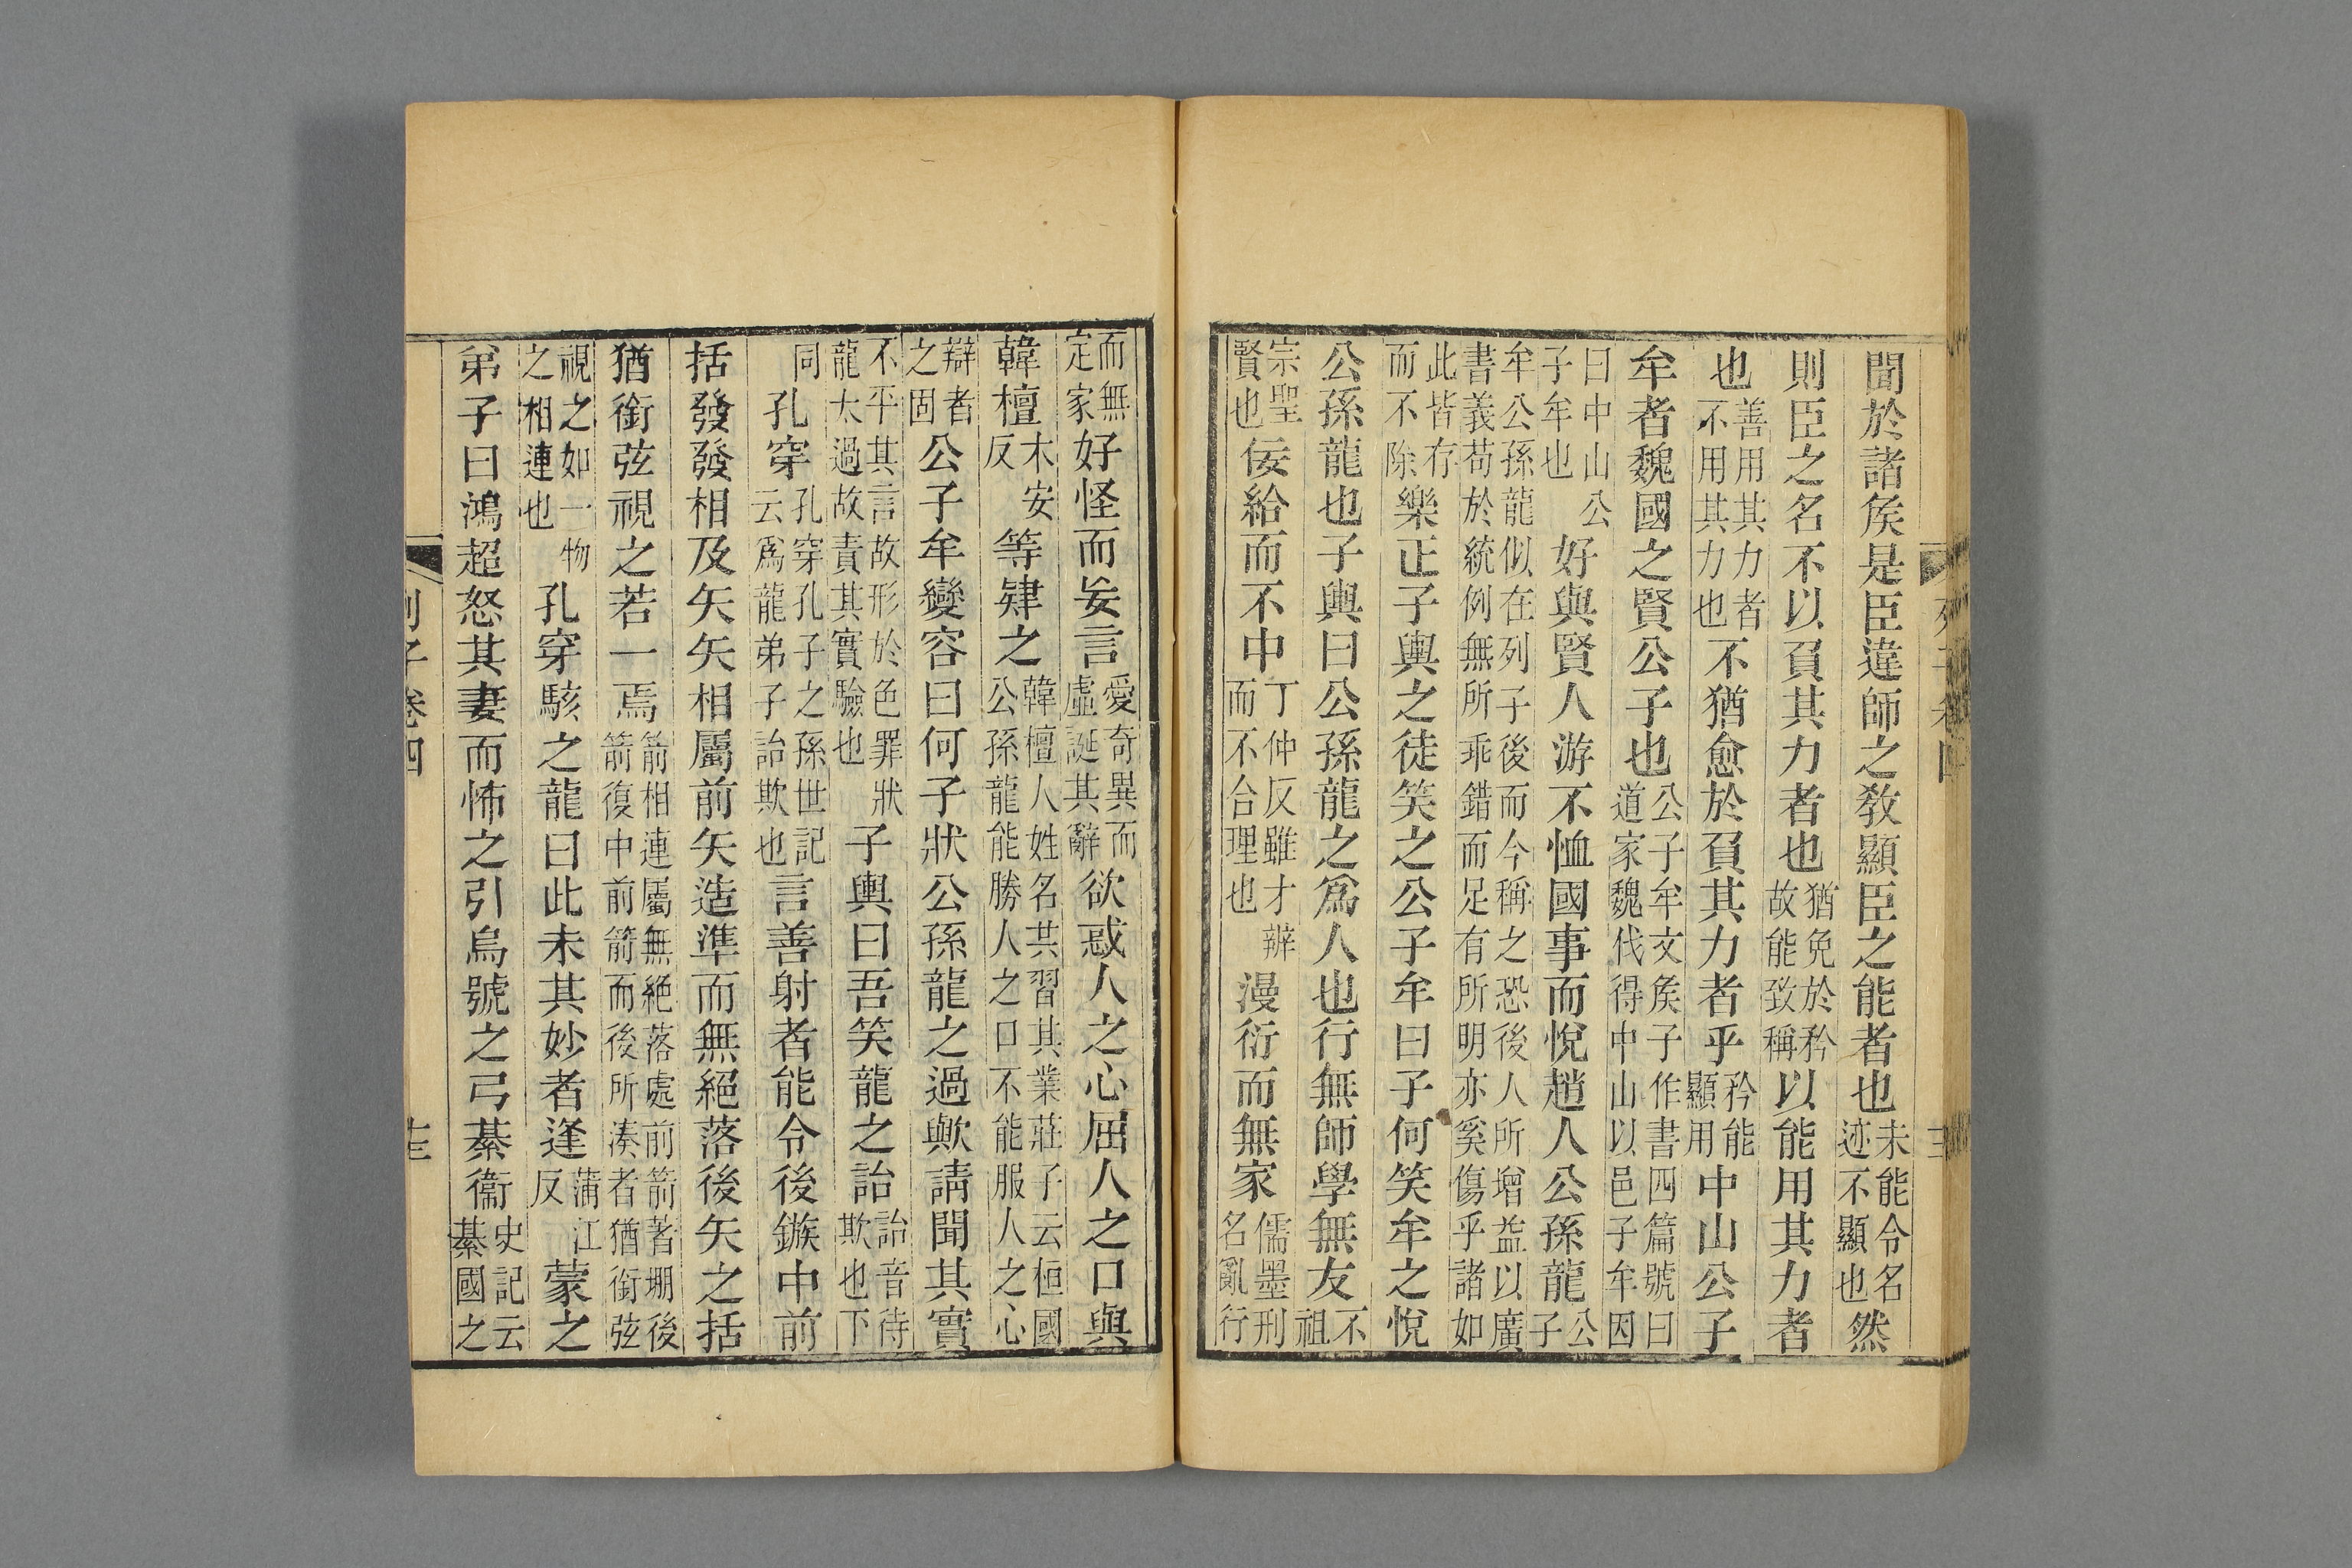 聞於諸矦是臣違師之教顯臣之能者也未能令名迹不顯也然
則臣之名不以負其力者也猶免於矜故能致稱以能用其力者
也善用其力者不用其力也不猶愈於負其力者乎矜能顯用中山公子
牟者魏國之賢公子也公子牟文矦子作書四篇號曰道家魏伐得中山以邑子牟因
曰中山公子牟也好與賢人游不恤國事而悅趙人公孫龍公子
牟公孫龍似在列子後而今稱之恐後人所增益以廣書義苟於統例無所乖錯而足有所明亦奚傷乎諸如
此皆存而不除樂正子輿之徒笑之公子牟曰子何笑牟之悅
公孫龍也子輿曰公孫龍之爲人也行無師學無友不祖
宗聖賢也佞給而不中丁仲反雖才辯而不合理也漫衍而無家儒墨刑名亂行
而無定家好怪而妄言愛奇異而虛誕其辭欲惑人之心屈人之口與
韓檀木安反等肄之韓檀人姓名共習其業莊子云桓國公孫龍能勝人之口不能服人之心
辯者之固公子牟變容曰何子狀公孫龍之過歟請聞其實
不平其言故形於色罪狀龍太過故責其實驗也子輿曰吾笑龍之詒詒音待欺也下
同孔穿孔穿孔子之孫世記云爲龍弟子詒欺也言善射者能令後鏃中前
括發發相及矢矢相屬前矢造準而無絕落後矢之括
猶銜弦視之若一焉箭相連屬無絕落處前箭著堋後箭復中前箭而後所湊者猶銜弦
視之如一物之相連也孔穿駭之龍曰此未其妙者逢蒲江反蒙之
弟子曰鴻超怒其妻而怖之引烏號之弓綦衞史記云綦國之
列子卷四